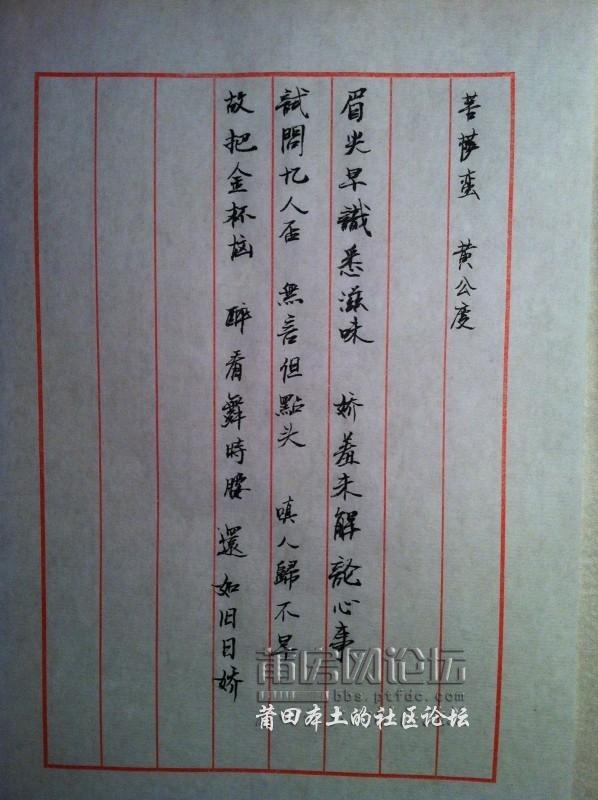 菩萨蛮 黄公度
眉尖早識愁滋味 娇羞未解論心事
試問忆人否 無言但點头 嗔人歸不早
故把金杯恼 醉看舞時腰 還如旧日娇
莆房网论坛
bbs.ptfdc.com
莆田本土的社区论坛